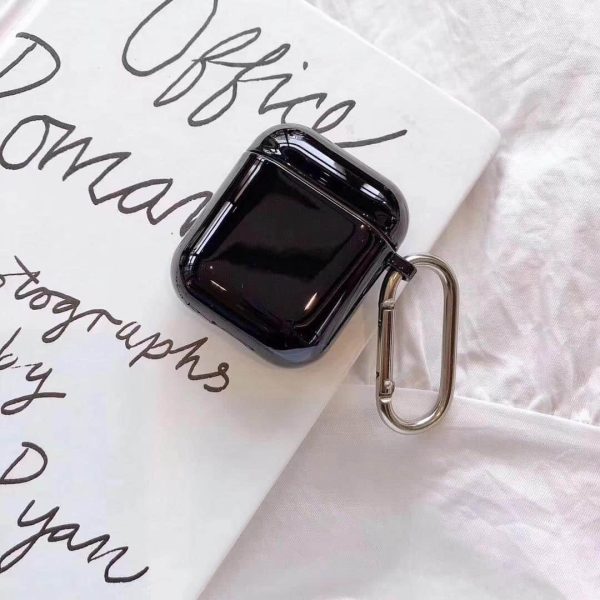 Office
Roman
otographs
by
Ryan